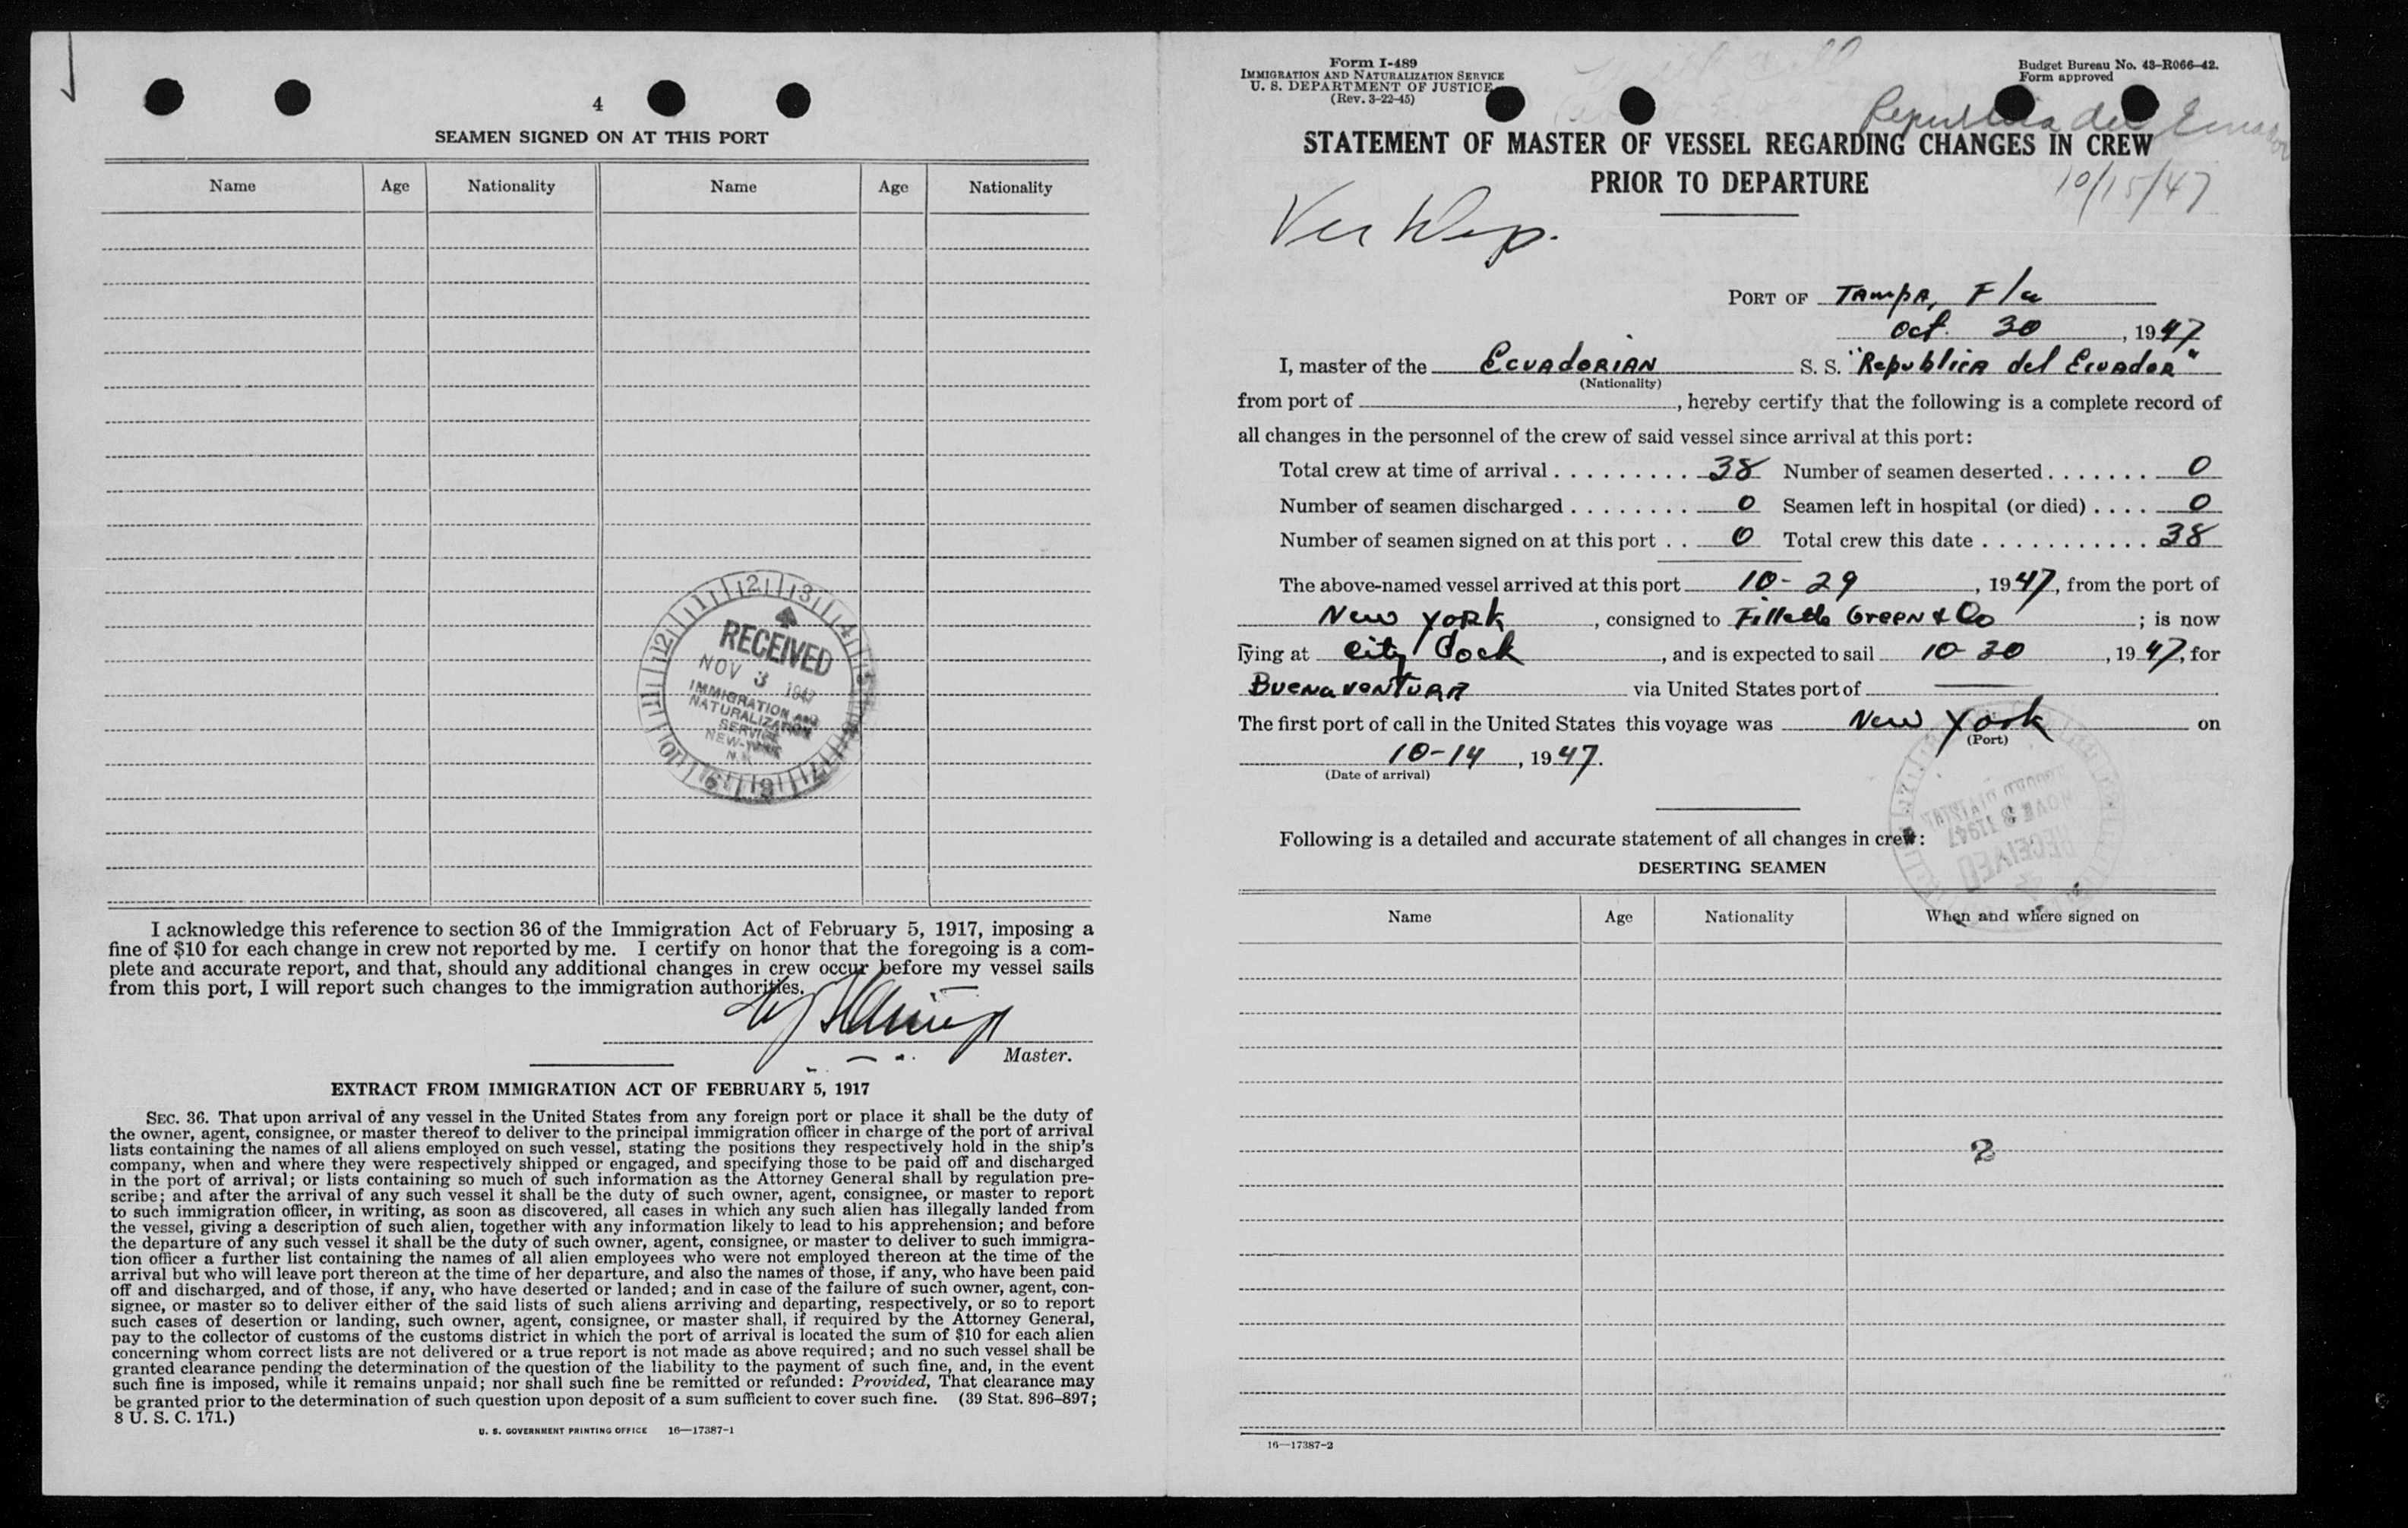 4
SEAMEN SIGNED ON AT THIS PORT
Name Age Nationality Name Age Nationality
RECEIVED
NOV 3 1947
IMMIGRATION AND
NATURALIZATION
SERVICE
NEW-YORK
N.Y.
I acknowledge this reference to section 36 of the Immigration Act of February 5, 1917, imposing a
fine of $10 for each change in crew not reported by me. I certify on honor that the foregoing is a com-
plete and accurate report, and that, should any additional changes in crew occur before my vessel sails
from this port, I will report such changes to the immigration authorities.
Master.
EXTRACT FROM IMMIGRATION ACT OF FEBRUARY 5, 1917
SEC. 36. That upon arrival of any vessel in the United States from any foreign port or place it shall be the duty of
the owner, agent, consignee, or master thereof to deliver to the principal immigration officer in charge of the port of arrival
lists containing the names of all aliens employed on such vessel, stating the positions they respectively hold in the ship's
company, when and where they were respectively shipped or engaged, and specifying those to be paid off and discharged
in the port of arrival; or lists containing so much of such information as the Attorney General shall by regulation pre-
scribe; and after the arrival of any such vessel it shall be the duty of such owner, agent, consignee, or master to report
to such immigration officer, in writing, as soon as discovered, all cases in which any such alien has illegally landed from
the vessel, giving a description of such alien, together with any information likely to lead to his apprehension; and before
the departure of any such vessel it shall be the duty of such owner, agent, consignee, or master to deliver to such immigra-
tion officer a further list containing the names of all alien employees who were not employed thereon at the time of the
arrival but who will leave port thereon at the time of her departure, and also the names of those, if any, who have been paid
off and discharged, and of those, if any, who have deserted or landed; and in case of the failure of such owner, agent, con-
signee, or master so to deliver either of the said lists of such aliens arriving and departing, respectively, or so to report
such cases of desertion or landing, such owner, agent, consignee, or master shall, if required by the Attorney General,
pay to the collector of customs of the customs district in which the port of arrival is located the sum of $10 for each alien
concerning whom correct lists are not delivered or a true report is not made as above required; and no such vessel shall be
granted clearance pending the determination of the question of the liability to the payment of such fine, and, in the event
such fine is imposed, while it remains unpaid; nor shall such fine be remitted or refunded: Provided, That clearance may
be granted prior to the determination of such question upon deposit of a sum sufficient to cover such fine. (39 Stat. 896-897;
8 U. S. C. 171.)
U. S. GOVERNMENT PRINTING OFFICE 16—17387-1
Form I-489
IMMIGRATION AND NATURALIZATION SERVICE
U. S. DEPARTMENT OF JUSTICE
(Rev. 3-22-45)
Budget Bureau No. 43-R066-42.
Form approved
Republica del Ecuador
STATEMENT OF MASTER OF VESSEL REGARDING CHANGES IN CREW
PRIOR TO DEPARTURE
10/15/47
PORT OF Tampa, Fla
Oct. 30, 1947
I, master of the Ecuadorian S. S. "Republica del Ecuador"
(Nationality)
from port of , hereby certify that the following is a complete record of
all changes in the personnel of the crew of said vessel since arrival at this port:
Total crew at time of arrival . . . . . . . . . . 38 Number of seamen deserted . . . . . . . 0
Number of seamen discharged . . . . . . . . 0 Seamen left in hospital (or died) . . . . 0
Number of seamen signed on at this port . . 0 Total crew this date . . . . . . . . . . . . 38
The above-named vessel arrived at this port 10-29, 1947, from the port of
New York, consigned to Green & Co; is now
lying at City Dock, and is expected to sail 10-30, 1947, for
Buenaventura via United States port of —
The first port of call in the United States this voyage was New York on
(Port)
10-14, 1947.
(Date of arrival)
Following is a detailed and accurate statement of all changes in crew:
DESERTING SEAMEN
Name Age Nationality When and where signed on
2
16—17387-2